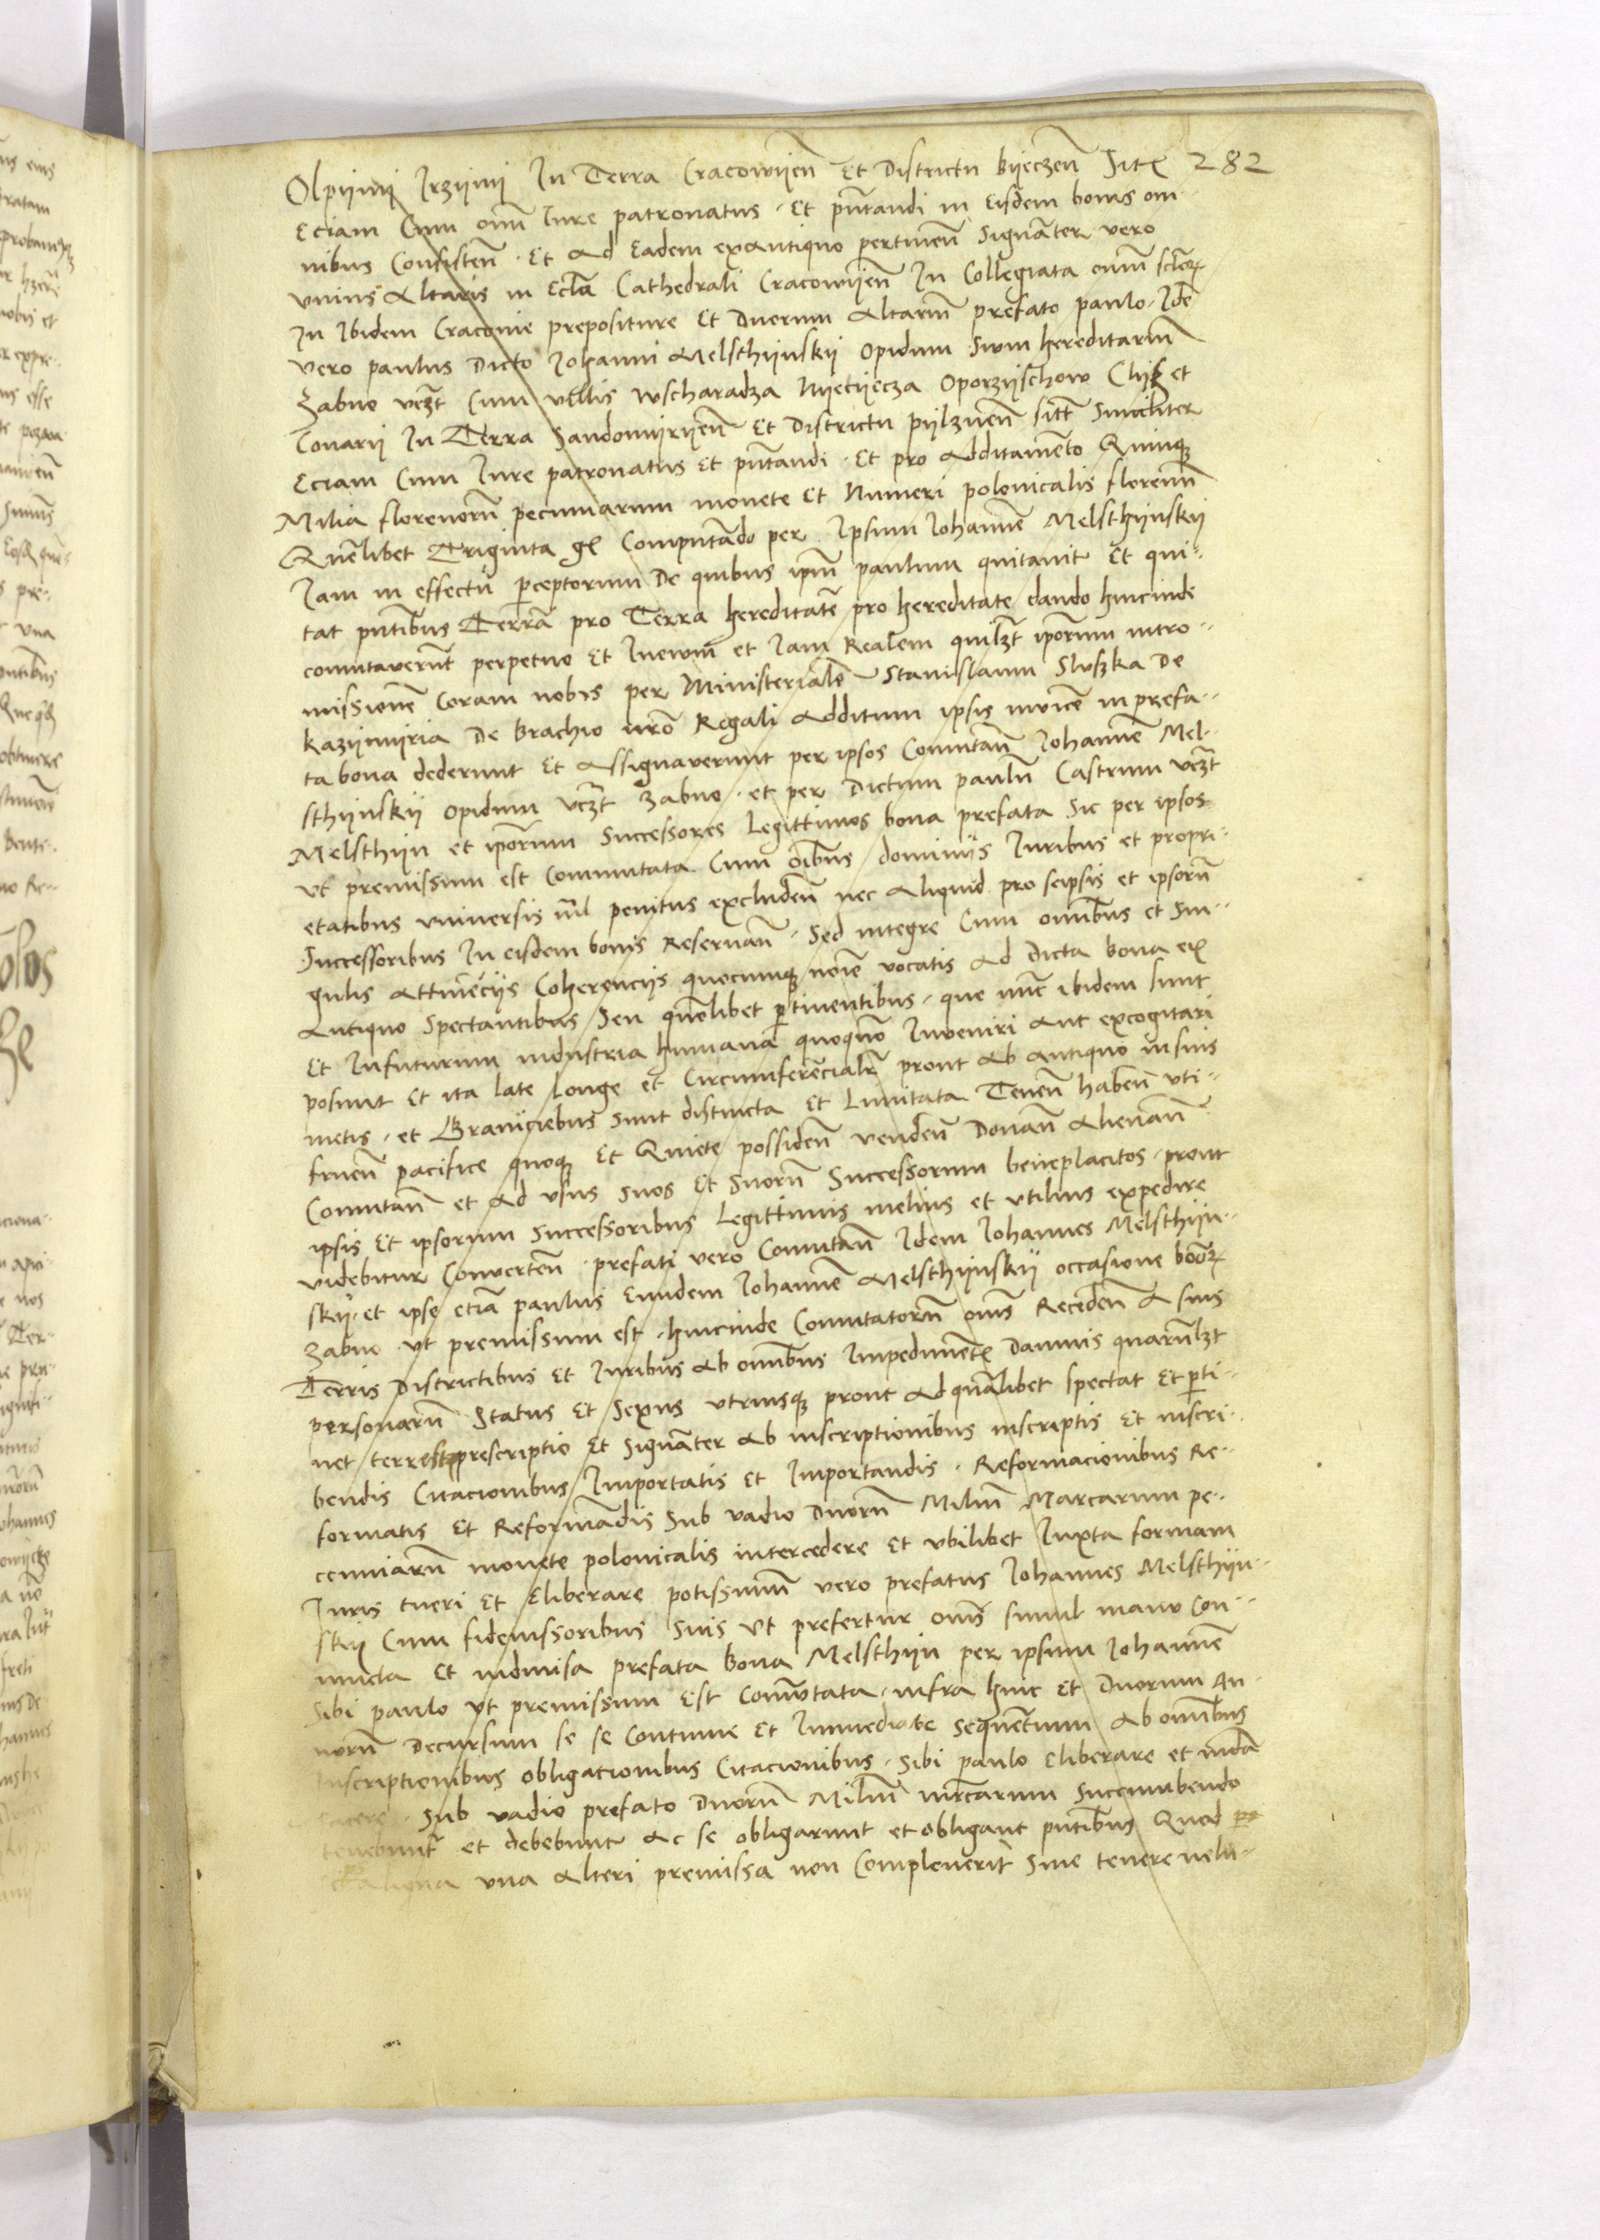 Olpijnij Irzijnij In Terra Cracowijen̄ Et Districtu bijeczen̄ Sitꝭ 282
Eciam Cum om̄i Iure patronatus · Et pn̄tandi in Eisdem bonis om-
nibus Consisten̄ · Et Ad Eadem exantiquo pertinen̄ Signāter vero
vnius Altaris in Eccl̄a Cathedrali Cracowijen̄ In Collegiata om̄iū sctōrꝫ
In Ibidem Cracovie prepositure Et Duorum Altariū prefato paulo · Idē
vero paulus Dicto Johanni Melsthijnskij Opidum Suum hereditariū
Zabno vcꝫt Cum villis wscharadza Nijecijecza Oporzijschow Clijk et
Conarij In Terra Sandomijrijen̄ Et Districtu pijlznen̄ sitt̄ Similiter
Eciam Cum Iure patronatus Et pn̄tandi · Et pro Additamēto Quinqꝫ
Milia florenorū pecuniarum monete Et Numeri polonicalis florenū
Quēlibet Triginta gꝭ Computādo per Ipsum Johannē Melsthijnskij
Iam in effectū perceptorum De quibus ipm̄ paulum quitavit Et qui-
tat pn̄tibus Terrā pro Terra hereditatē pro hereditate dando hincinde
comutaverūt perpetuo Et Inewm̄ et Iam Realem quilꝫt ipōrum intro-
missionē Coram nobis per Ministerialē Stanislaum Sluszka De
kazijmijria De brachio nr̄o Regali Additum ipsis invicē in prefa-
ta bona dederunt Et Assignaverunt per ipsos Comutan̄ Johannē Mel-
sthijnskij Opidum vcꝫt Zabno · et per Dictum paulū Castrum vcꝫt
Melsthijn et ipōrum Successores Legittimos bona prefata Sic per ipsos
vt premissum est Commutata Cum oībus dominijs Iuribus et propri-
etatibus vniversis nīl penitus excluden̄ nec Aliquid pro seipsis et ipsorū
Successoribus In eisdem bonis Reservan̄ · Sed integre Cum omībus et Sin-
gulis Attinēcijs Coherencijs quocumqꝫ noīe vocatis Ad Dicta bona ex
Antiquo Spectantibus Seu quōlibet pertinentibus · que nūc ibidem sunt
Et Infuturum industria humana quoquō Inveniri Aut excogitari
possunt Et ita late Longe et Circumferēcialr̄ prout Ab antiquo in suis
metis · et Graniciebus sunt distincta Et Limitata Tenen̄ haben̄ vti-
fruen̄ pacifice quoqꝫ Et Quiete possiden̄ venden̄ Donan̄ Alienan̄
Comutan̄ et Ad vsus suos Et Suorū Successorum beneplacitos · prout
ipsis Et ipsorum Successoribus Legittimis melius et vtilius expedire
videbitur Converten̄ · prefati vero Comutan̄ Idem Johannes Melsthijn-
skij · et ipse eciā paulus Eundem Johannē Melsthijnskij occasione bonōrꝫ
Zabno vt premissum est · hincinde Comutatorū om̄s Receden̄ A suis
Terris Districtibus Et Iuribus Ab omībus Impedimentꝭ Damnis quarūlꝫt
personarū Status Et Sexus vtriusqꝫ prout Ad quālibet spectat Et perti-
net terrestrꝭ prescriptio Et Signāter Ab inscriptionibus inscriptis Et inscri-
bendis Citacionibus Importatis Et Importandis · Reformacionibus Re-
formatis Et Reformādis Sub vadio Duorū Miliū Marcarum pe-
cuniarū monete polonicalis intercedere Et vbilibet Iuxta formam
Iuris tueri Et Eliberare potissimū vero prefatus Johannes Melsthijn-
skij Cum fideiussoribus Suis vt prefertur om̄s simul manu Con-
iuncta Et indivisa prefata bona Melsthijn per ipsum Johannē
Sibi paulo vt premissum Est Comutata · infra hinc Et Duorum An-
norū Decursum se se Continue Et Immediate Sequētium Ab omībus
Inscriptionibus obligationibus Citacionibus · Sibi paulo Eliberare et
facere · Sub vadio prefato Duorū Miliū mr̄carum Succumbendo
tenebunt̄ et debebunt Ac se obligarunt et obligant pn̄tibus Quod
una Alteri premissa non Compleverit Sive tenere